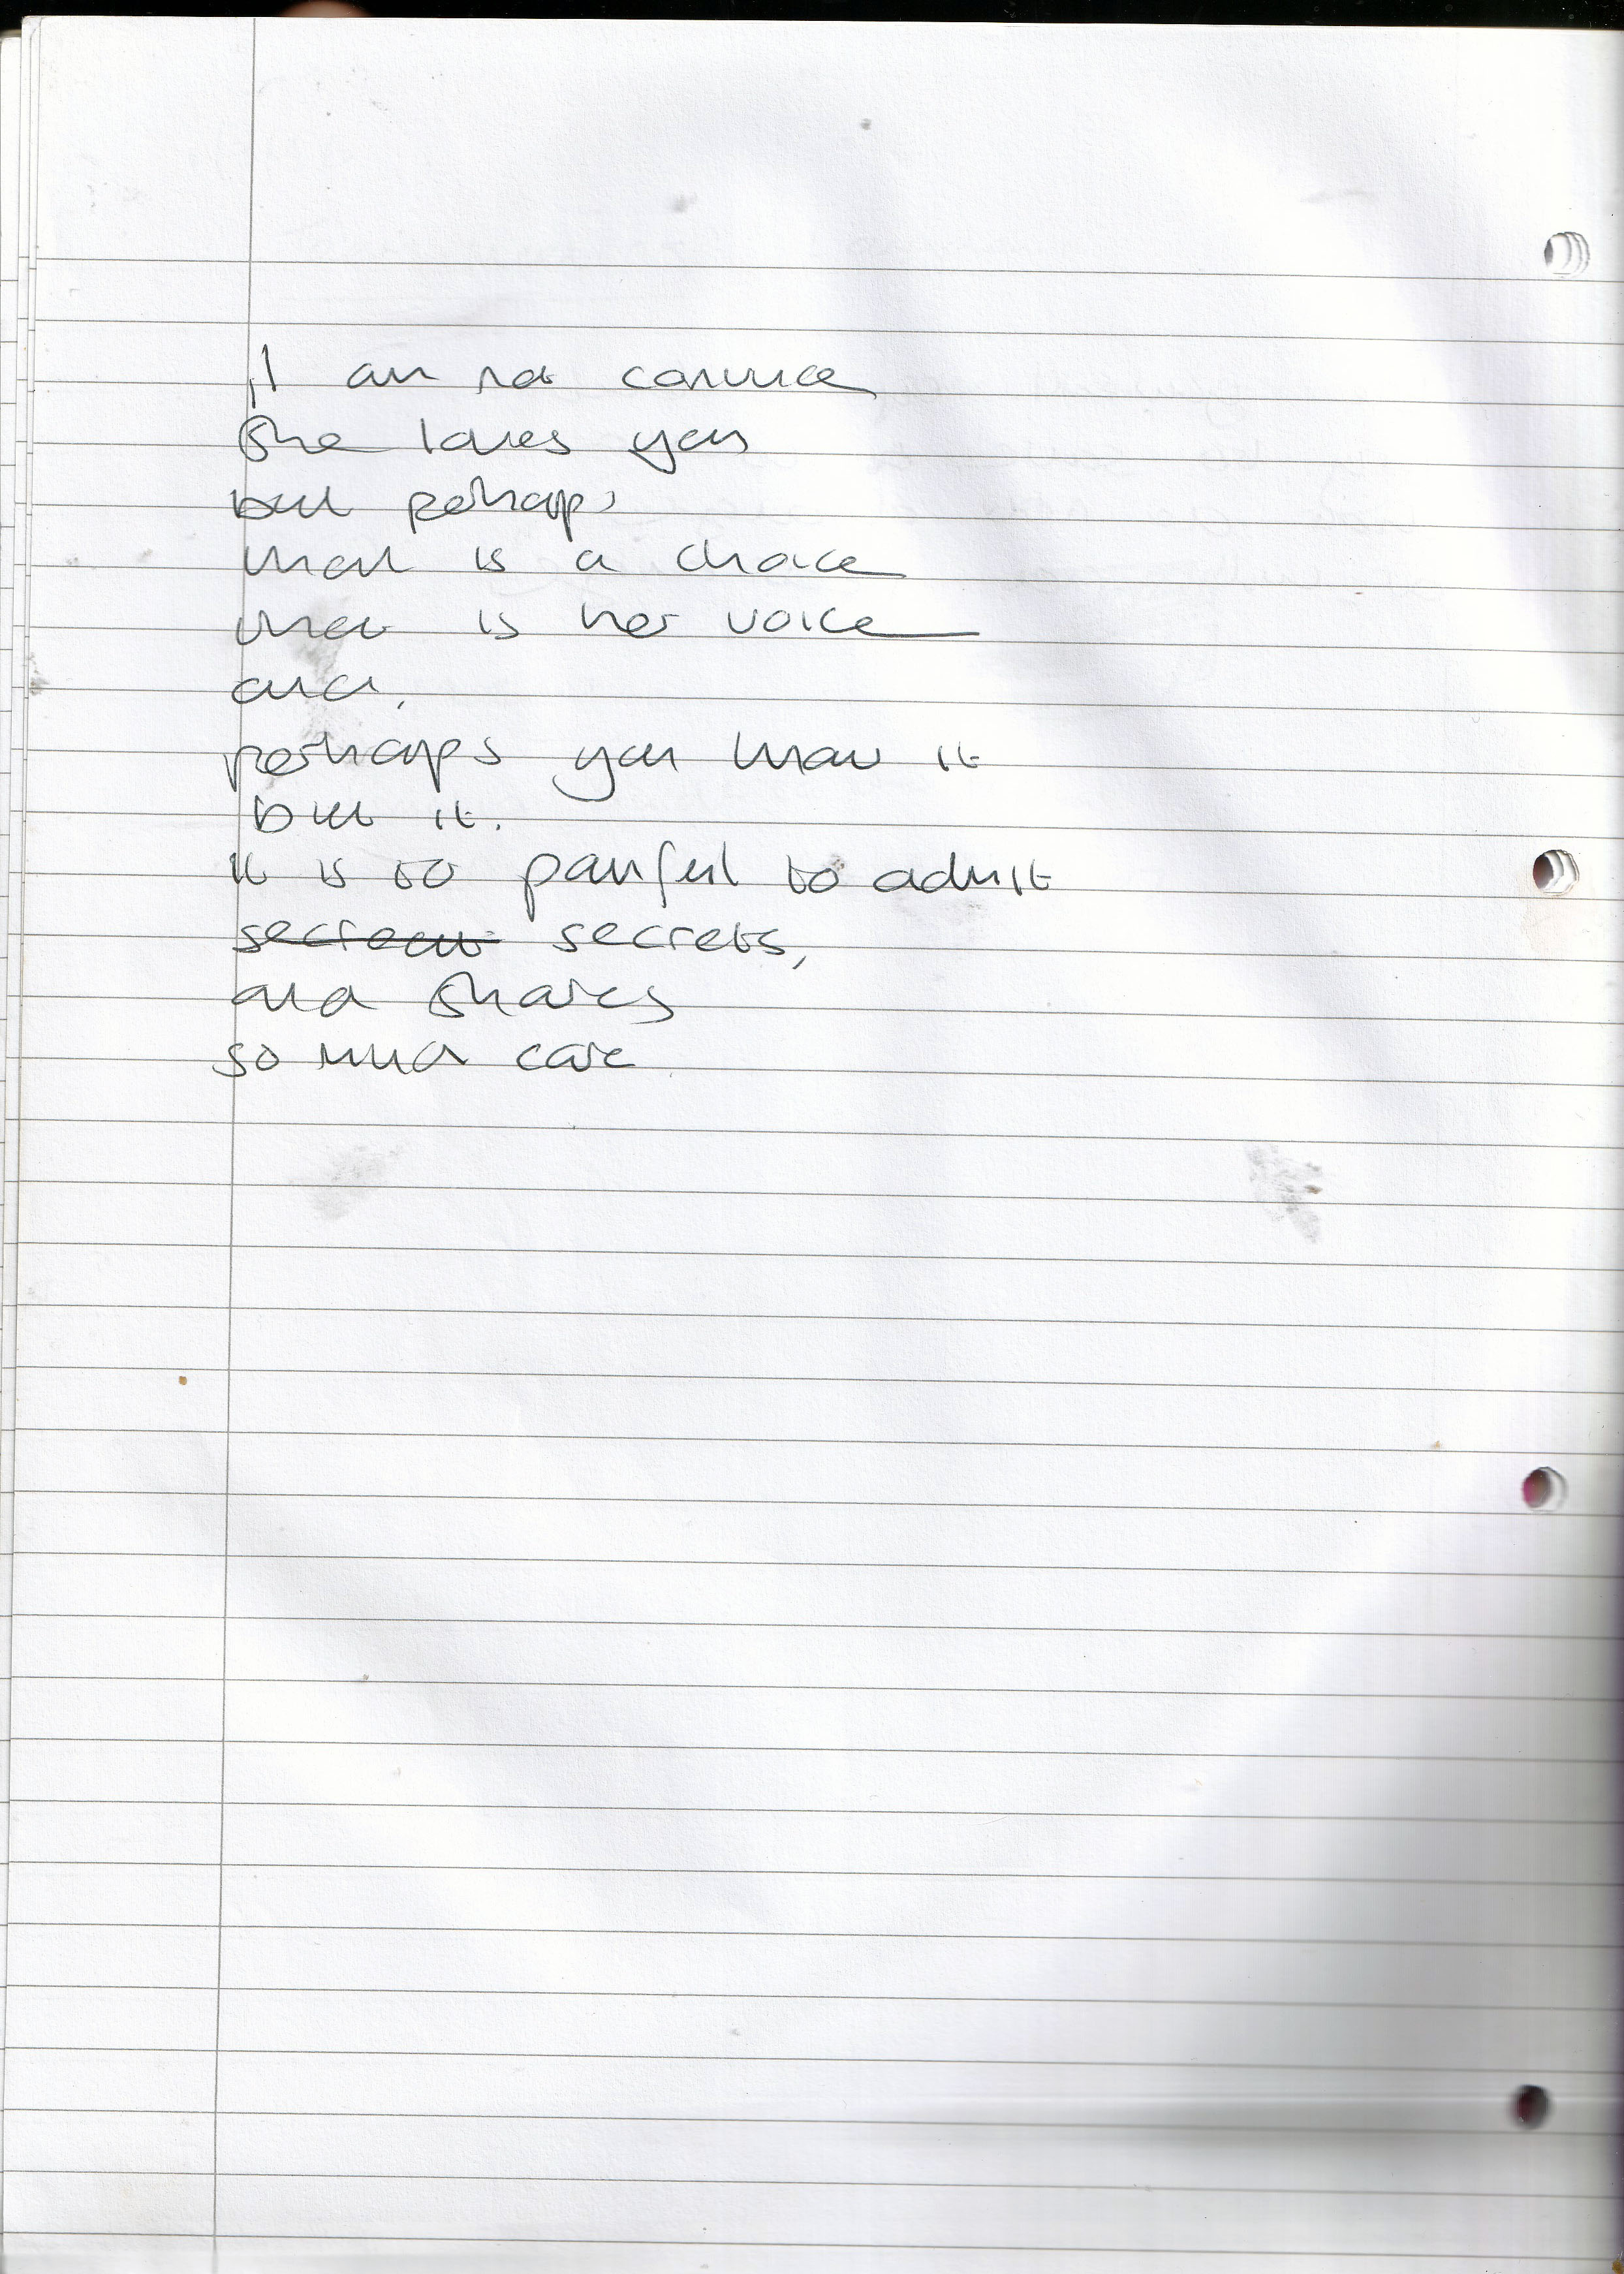 I am not convince
She loves you
but perhaps
that is a choice
that is her voice
and,
perhaps you know it
but it.
it is so painful to admit
secrets,
and shares
so much care